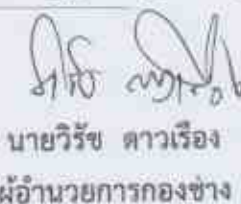 นายวิรัช ดาวเรือง
ผู้อำนวยการกองช่าง